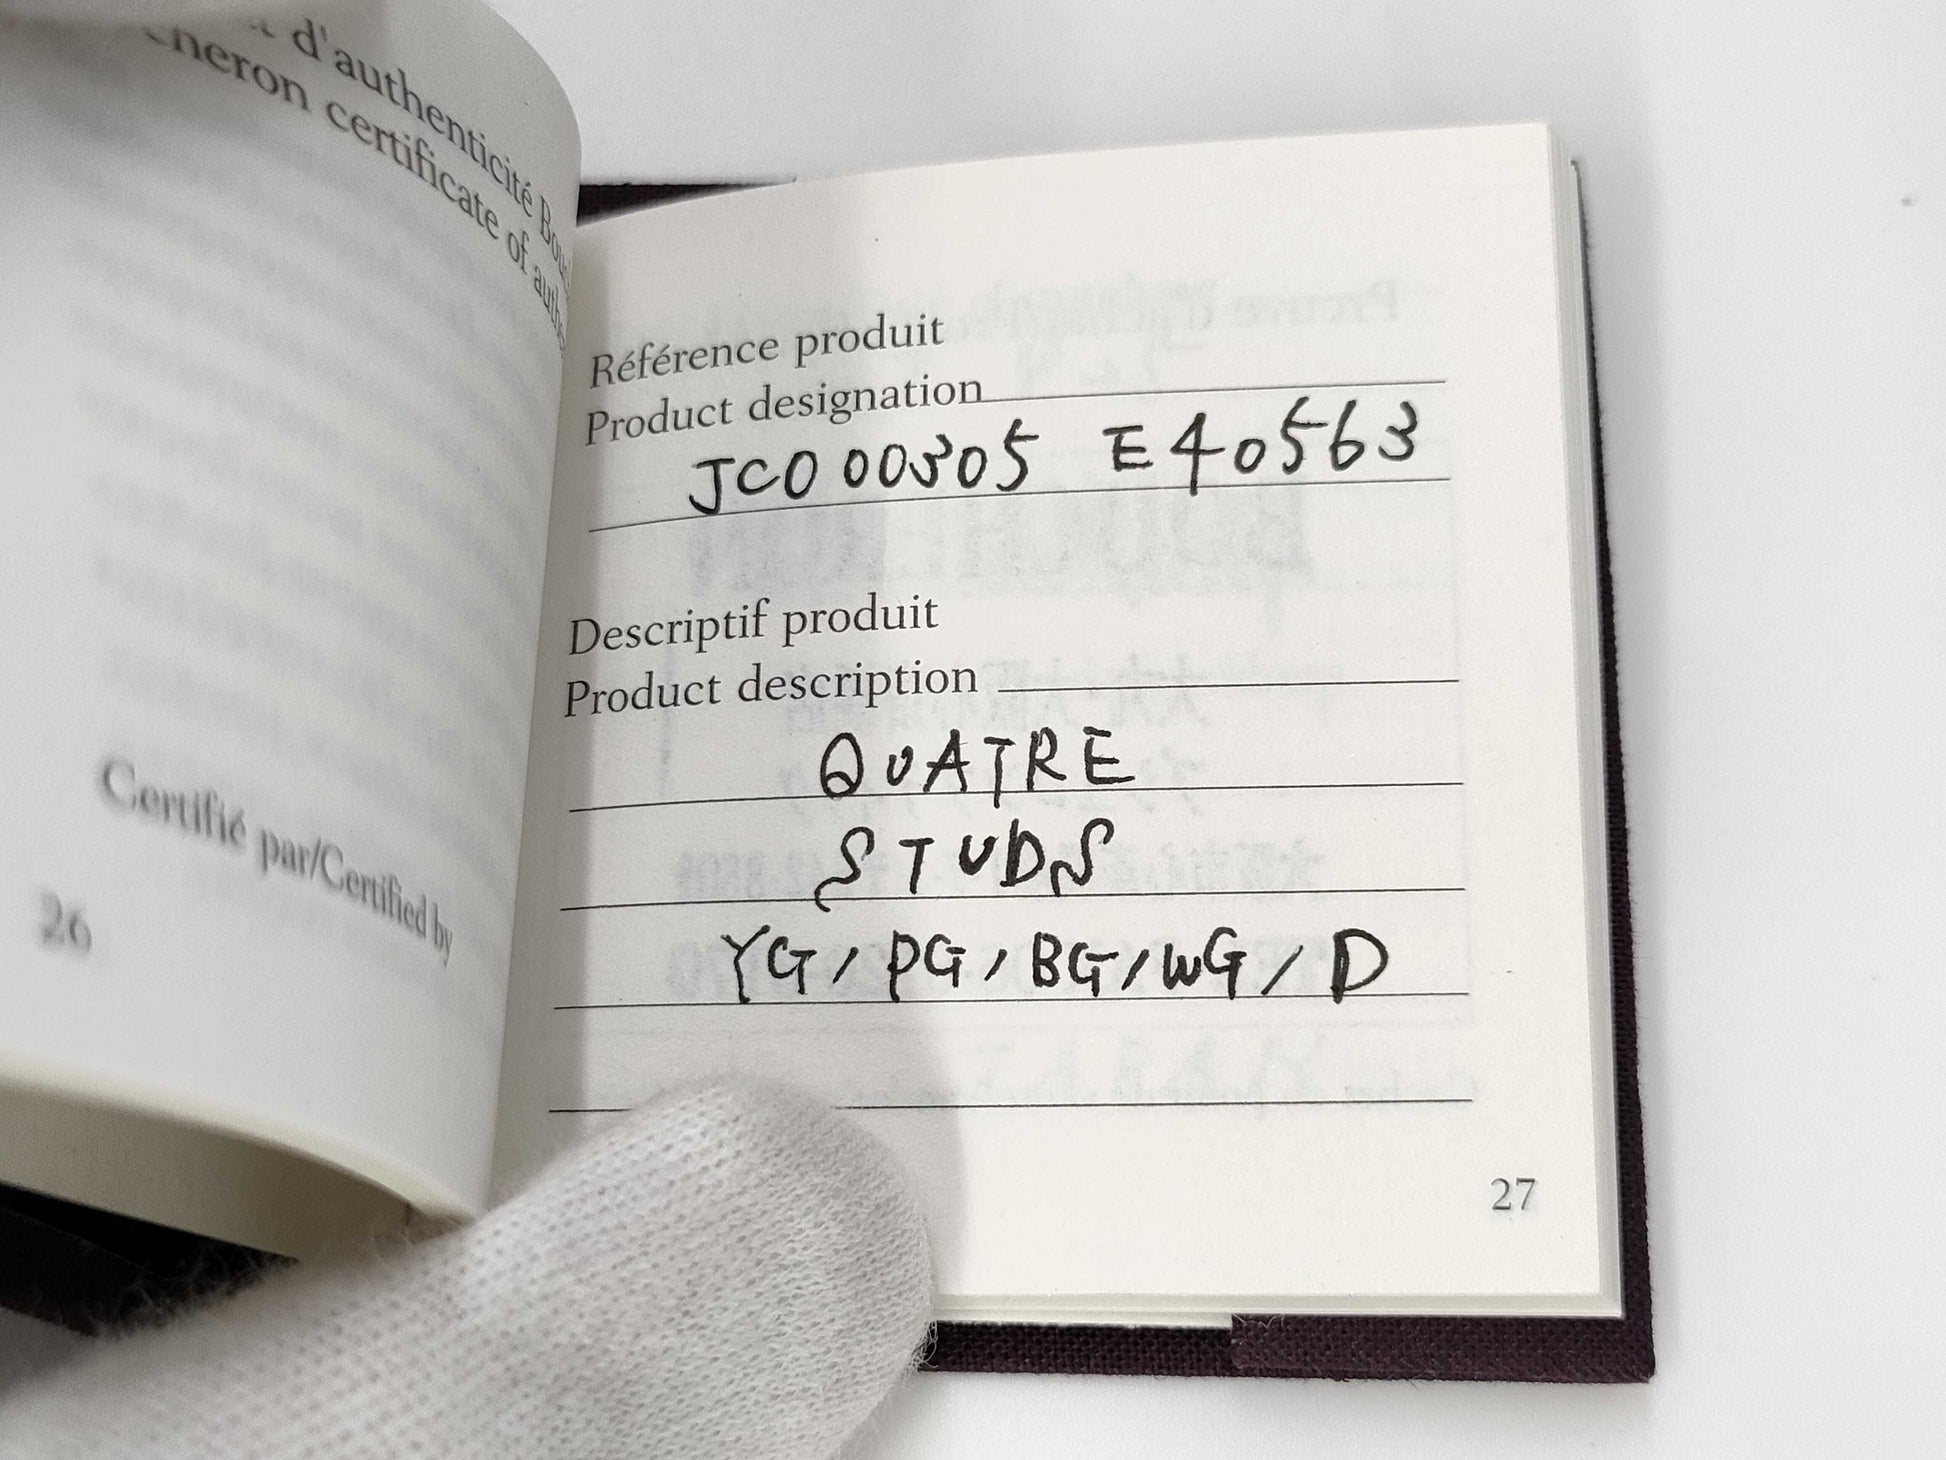 d'authenticité
cheron certificate of
Certifié par/Certified by
26
Référence produit
Product designation
JC000305 E40563
Descriptif produit
Product description
QUATRE
STUDS
YG/PG/BG/WG/D
27